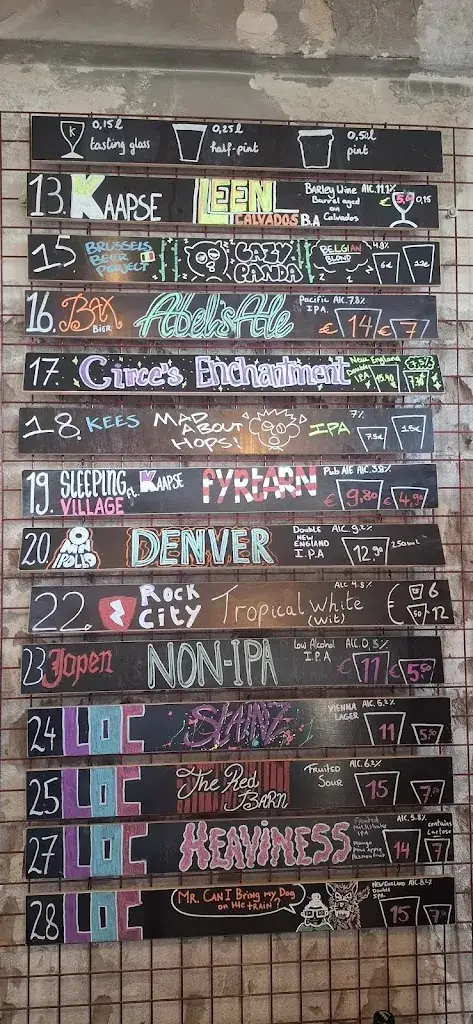 0,15l tasting glass
0,25l half-pint
0,50l pint
13. KAAPSE LEEN CALVADOS B.A
Barley Wine Alc. 11.1%
Barrel aged
on
Calvados
€ 5,6 0,15
15 BRUSSELS BEER PROJECT LAZY PANDA BELGIAN BLOND 4.8% 6€ 12€
16. BAX BIER Abel's Ale
Pacific Alc. 7.8%
I.P.A.
€ 14 € 7
17. Circe's Enchantment
New England
Double
I.P.A
18. KEES MAD ABOUT HOPS! IPA 7% 7.5€ 15€
19. SLEEPING VILLAGE ft. KAAPSE FYRTARN
Pub Ale Alc. 3.8%
€ 9,80 € 4,90
20 OMNIPOLLO DENVER
Double Alc. 9.2%
NEW
ENGLAND
I.P.A
12.90 250ml
22. ROCK CITY Tropical White (wit)
Alc 4.8%
€ 6
50 12
23 Jopen NON-IPA
Low Alcohol Alc. 0,3%
I.P.A
€ 11 € 5.50
24 LOC STAINZ
VIENNA LAGER
Alc. 5.2%
11 5.50
25 LOC The Red BARN
Fruited Sour
Alc. 6.2%
15 7.50
27 LOC HEAVINESS
Fruited
Milkshake
IPA
Mango
Pineapple
Passionfruit
Alc. 5.8%
contains
Lactose
14 7
28 LOC MR. CAN I BRING MY DOG ON THE TRAIN?
NEW ENGLAND
Double
IPA
15 7.50